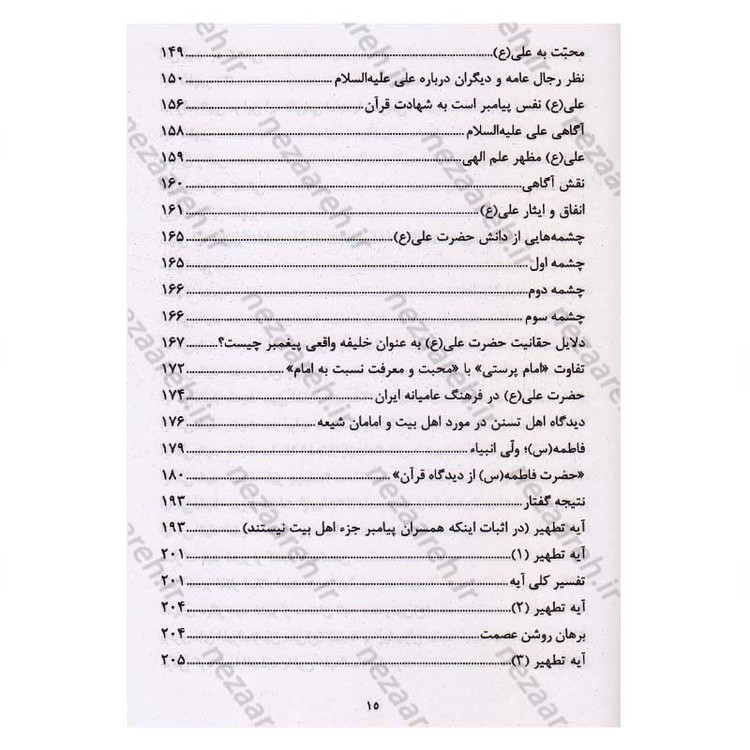 محبّت به علی(ع)..........۱۴۹
نظر رجال عامه و دیگران درباره علی علیه‌السلام..........۱۵۰
علی(ع) نفس پیامبر است به شهادت قرآن..........۱۵۶
آگاهی علی علیه‌السلام..........۱۵۸
علی(ع) مظهر علم الهی..........۱۵۹
نقش آگاهی..........۱۶۰
انفاق و ایثار علی(ع)..........۱۶۱
چشمه‌هایی از دانش حضرت علی(ع)..........۱۶۵
چشمه اول..........۱۶۵
چشمه دوم..........۱۶۶
چشمه سوم..........۱۶۶
دلایل حقانیت حضرت علی(ع) به عنوان خلیفه واقعی پیغمبر چیست؟..........۱۶۷
تفاوت «امام پرستی» با «محبت و معرفت نسبت به امام»..........۱۷۲
حضرت علی(ع) در فرهنگ عامیانه ایران..........۱۷۴
دیدگاه اهل تسنن در مورد اهل بیت و امامان شیعه..........۱۷۶
فاطمه(س)؛ ولّی انبیاء..........۱۷۹
«حضرت فاطمه(س) از دیدگاه قرآن»..........۱۸۰
نتیجه گفتار..........۱۹۳
آیه تطهیر (در اثبات اینکه همسران پیامبر جزء اهل بیت نیستند)..........۱۹۳
آیه تطهیر (۱)..........۲۰۱
تفسیر کلی آیه..........۲۰۱
آیه تطهیر (۲)..........۲۰۴
برهان روشن عصمت..........۲۰۴
آیه تطهیر (۳)..........۲۰۵
۱۵
nezaareh.ir